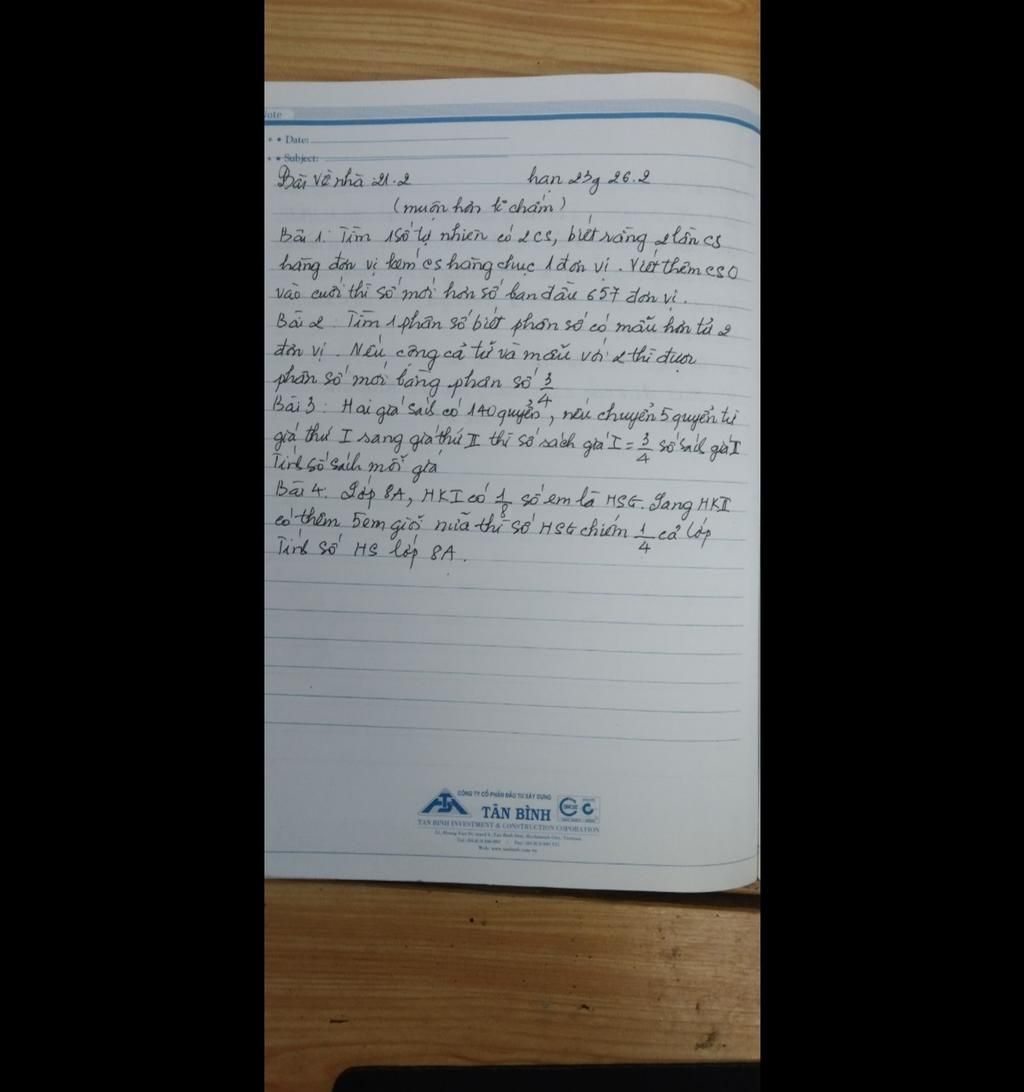 Note
• • Date:
• • Subject:
Bài về nhà 21.2 hạn 23g 26.2
(muộn hơn k chấm)
Bài 1: Tìm 1 số tự nhiên có 2 CS, biết rằng 2 lần CS
hàng đơn vị kém CS hàng chục 1 đơn vị. Viết thêm CS 0
vào cuối thì số mới hơn số ban đầu 657 đơn vị.
Bài 2: Tìm 1 phân số biết phân số có mẫu hơn tử 2
đơn vị. Nếu cộng cả tử và mẫu với 2 thì được
phân số mới bằng phân số 3/4
Bài 3: Hai giá sách có 140 quyển, nếu chuyển 5 quyển từ
giá thứ I sang giá thứ II thì số sách giá I = 3/4 số sách giá II
Tính số sách mỗi giá
Bài 4: Lớp 8A, HKI có 1/8 số em là HSG. Sang HKII
có thêm 5 em giỏi nữa thì số HSG chiếm 1/4 cả lớp
Tính số HS lớp 8A.
CÔNG TY CỔ PHẦN ĐẦU TƯ XÂY DỰNG
TÂN BÌNH
TAN BINH INVESTMENT & CONSTRUCTION COPORATION